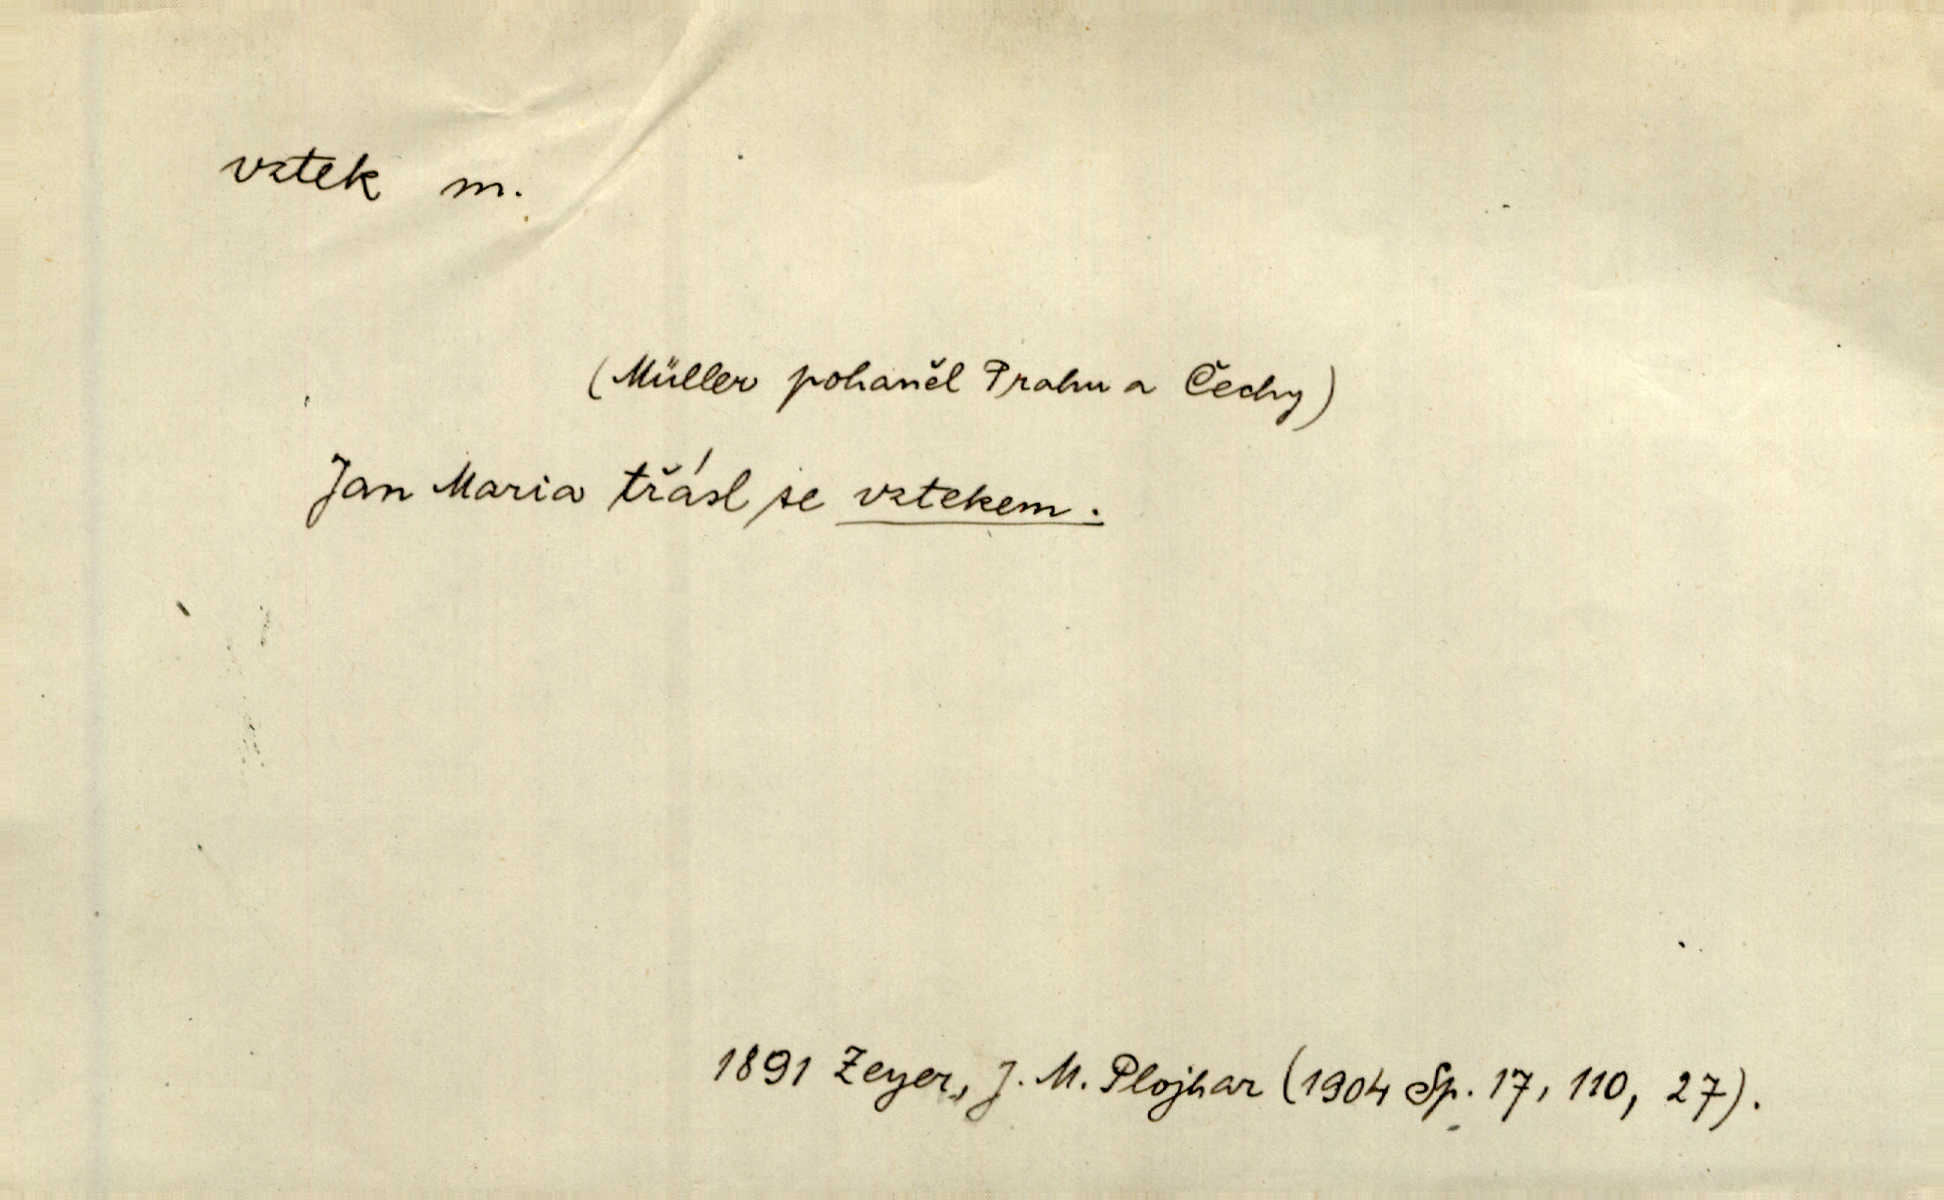 vztek m.
(Müller pohaněl Prahu a Čechy)
Jan Maria třásl se vztekem.
1891 Zeyer, J. M. Plojhar (1904 Sp. 17, 110, 27).